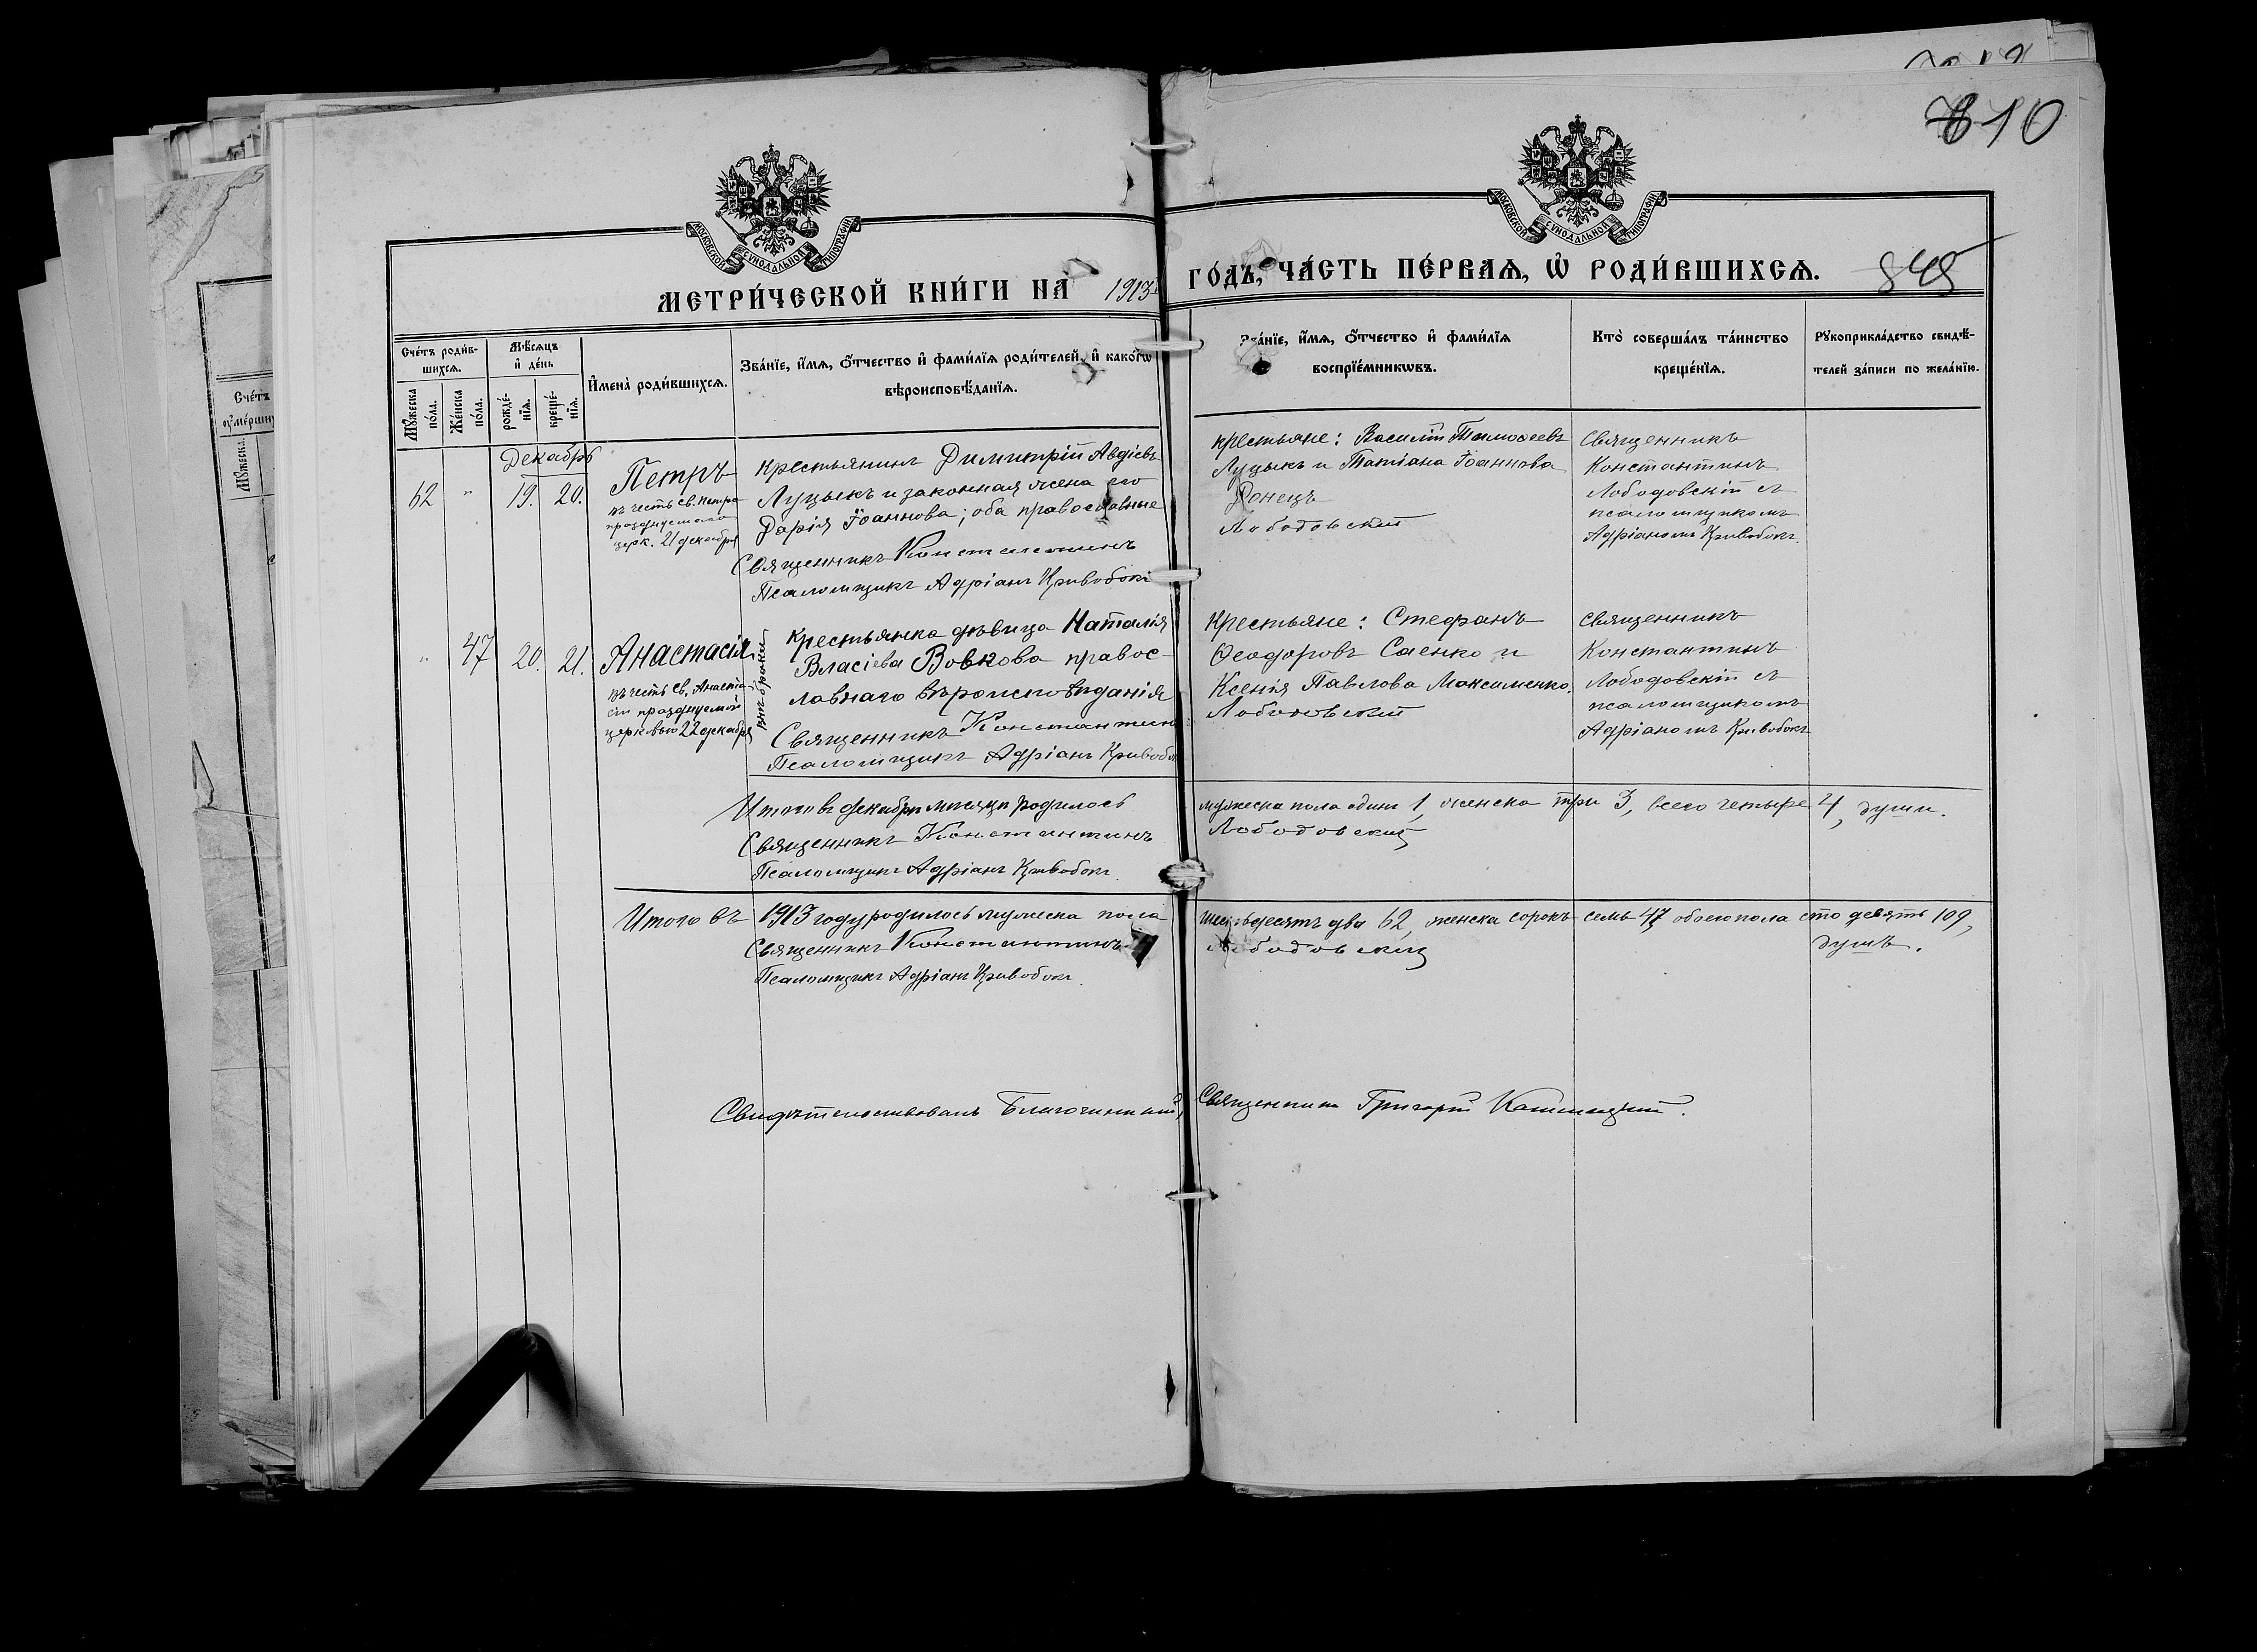 810
МОСКОВСКОЙ СѴНОДАЛЬНОЙ ТИПОГРАФІИ
МОСКОВСКОЙ СѴНОДАЛЬНОЙ ТИПОГРАФІИ
МЕТРИ́ЧЕСКОЙ КНИ́ГИ НА 1913
ГО́ДЪ, ЧА́СТЬ ПЕ́РВАѦ, Ѽ РОДИ́ВШИХСѦ.
845
Сче́тъ роди́в-
шихсѧ.
Мѣ́сѧцъ
и҆ де́нь
Мꙋ́жеска по́ла.
Же́нска по́ла.
рожде́-нїѧ.
креще́-нїѧ.
И҆мена̀ роди́вшихсѧ.
Зва́нїе, и҆́мѧ, ѻ҆́тчество и҆ фами́лїѧ роди́телей, и҆ како́гѡ
вѣроисповѣ́данїѧ.
Зва́нїе, и҆́мѧ, ѻ҆́тчество и҆ фами́лїѧ
воспрїе́мникѡвъ.
Кто̀ соверша́лъ та́инство
креще́нїѧ.
Рꙋкоприкла́дство свидѣ́-
телей за́писи по жела́нїю.
Декабрь
62 " 19. 20.
Петръ
въ честь св. Петра
празднуемаго
церк. 21 декабря
Крестьянинъ Димитрій Авдіевъ
Луцыкъ и законная жена его
Дарія Іоаннова; оба православные
Священникъ Константинъ
Псаломщикъ Адріанъ Кривобокъ
крестьяне: Василій Тимоѳеевъ
Луцыкъ и Татіана Іоаннова
Донецъ
Лободовскій
Священникъ
Константинъ
Лободовскій съ
псаломщикомъ
Адріаномъ Кривобокъ.
" 47 20. 21.
Анастасія
въ честь св. Анаста-
сіи празднуемой
церковью 22 декабря
Крестьянка дѣвица Наталія
Власіева Вовкова правос-
лавнаго вѣроисповѣданія
Священникъ Константинъ
Псаломщикъ Адріанъ Кривобо
Крестьяне: Стефанъ
Ѳеодоровъ Саенко и
Ксенія Павлова Максименко.
Лободовскій
Священникъ
Константинъ
Лободовскій съ
псаломщикомъ
Адріаномъ Кривобокъ
Итого въ декабрѣ мѣсяцѣ родилось
мужеска пола одинъ 1, женска три 3, всего четыре 4, души.
Священникъ Константинъ
Лободовскій
Псаломщикъ Адріанъ Кривобокъ.
Итого въ 1913 году родилось мужеска пола
шестьдесятъ два 62, женска сорокъ семь 47, обоего пола сто девять 109,
душъ.
Священникъ Константинъ
Лободовскій
Псаломщикъ Адріанъ Кривобокъ.
Свидѣтельствовалъ Благочинный,
Священникъ Григорій